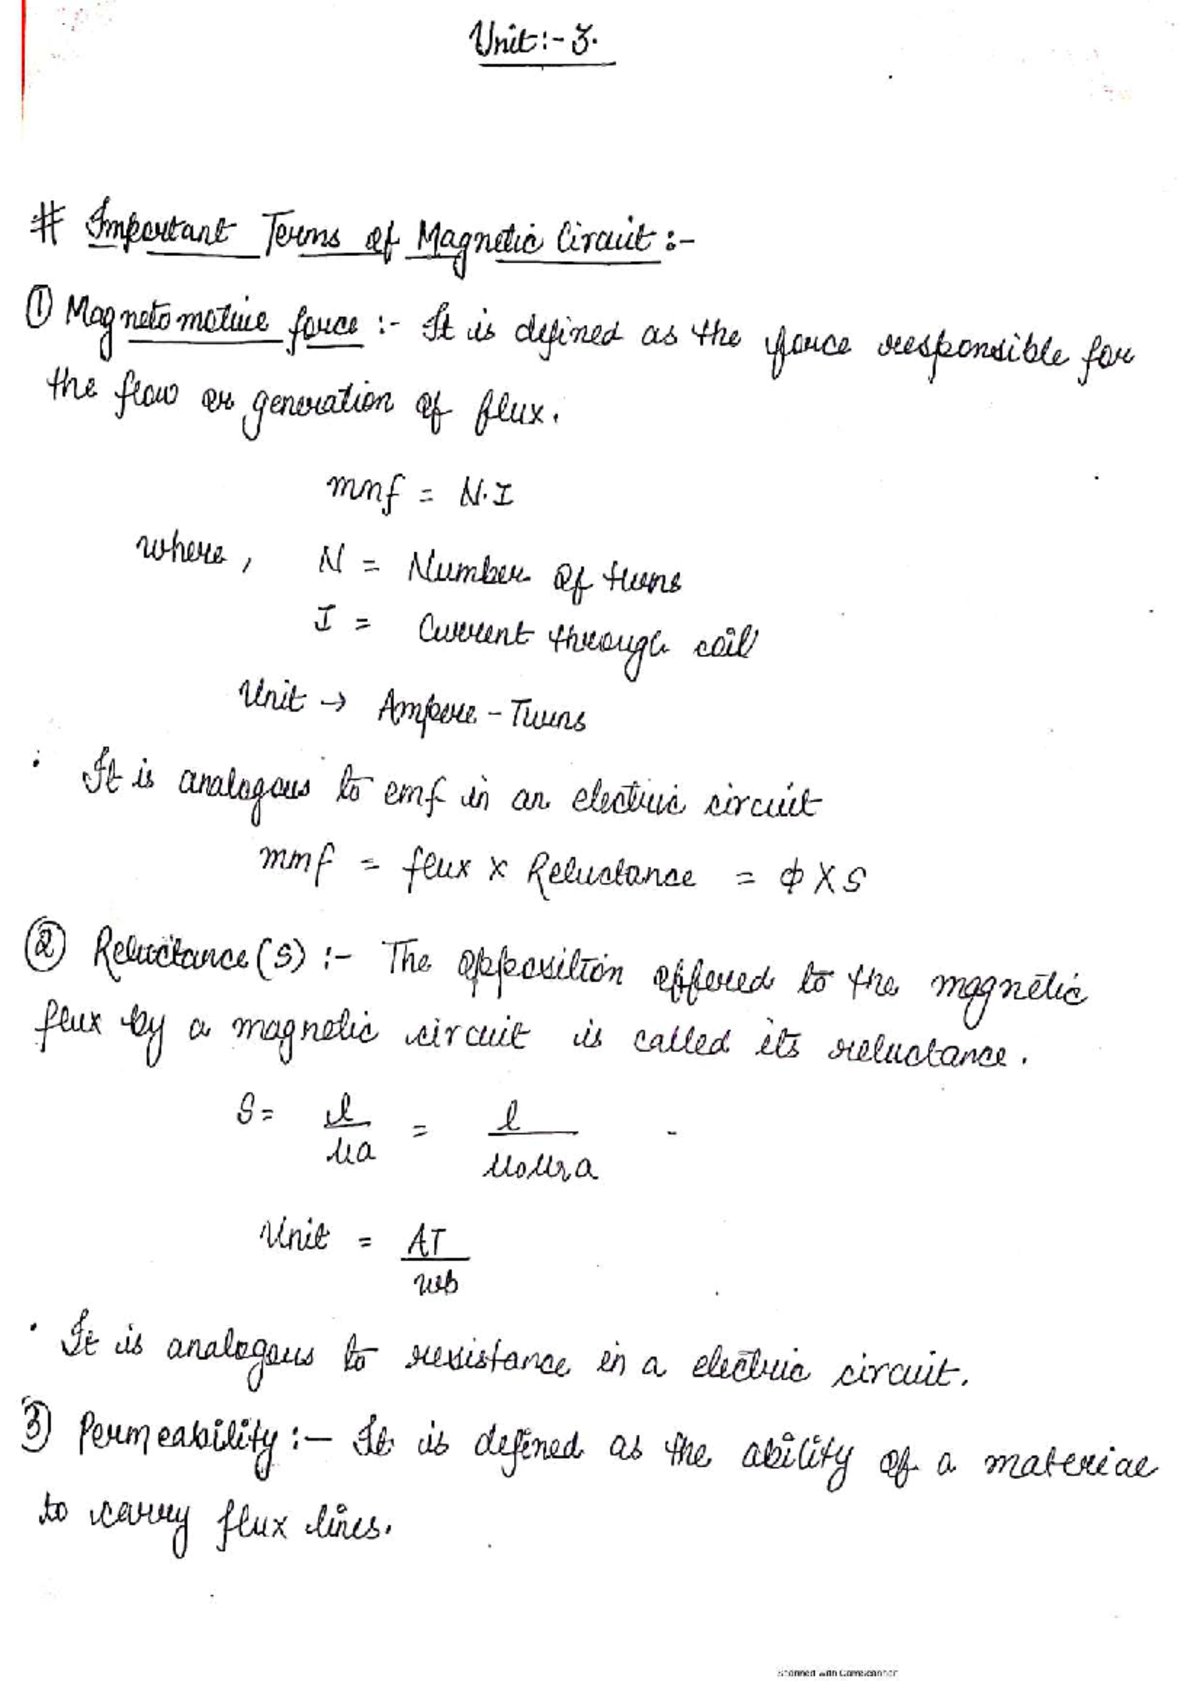 Unit:- 3.
# Important Terms of Magnetic Circuit :-
① Magnetomotive force :- It is defined as the force responsible for
the flow or generation of flux.
mmf = N.I
where, N = Number of turns
I = Current through coil
Unit → Ampere - Turns
· It is analogous to emf in an electric circuit
mmf = flux x Reluctance = Φ X S
② Reluctance (S) :- The opposition offered to the magnetic
flux by a magnetic circuit is called its reluctance.
S = l/μa = l/μ0μra
Unit = AT/wb
· It is analogous to resistance in a electric circuit.
③ Permeability :- It is defined as the ability of a material
to carry flux lines.
Scanned with CamScanner